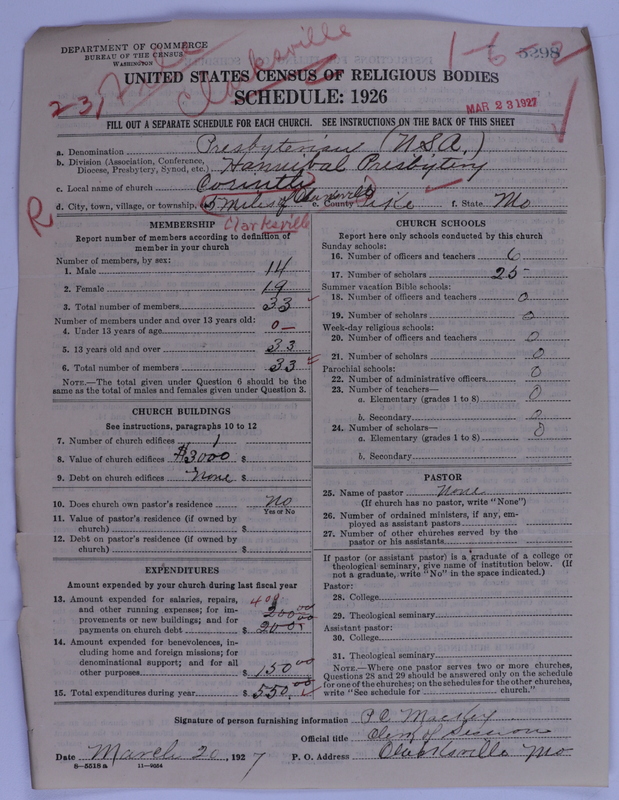 DEPARTMENT OF COMMERCE
BUREAU OF THE CENSUS
WASHINGTON
Clarksville
1-6
5298
UNITED STATES CENSUS OF RELIGIOUS BODIES
23,
SCHEDULE: 1926
MAR 23 1927
FILL OUT A SEPARATE SCHEDULE FOR EACH CHURCH. SEE INSTRUCTIONS ON THE BACK OF THIS SHEET
a. Denomination Presbyterian (U.S.A.)
b. Division (Association, Conference, Diocese, Presbytery, Synod, etc.) Hannibal Presbytery
c. Local name of church Corinth
d. City, town, village, or township, 5 miles of Clarksville e. County Pike f. State Mo
R
Clarksville
MEMBERSHIP
Report number of members according to definition of member in your church
Number of members, by sex:
1. Male 14
2. Female 19
3. Total number of members 33
Number of members under and over 13 years old:
4. Under 13 years of age 0
5. 13 years old and over 33
6. Total number of members 33
NOTE.—The total given under Question 6 should be the same as the total of males and females given under Question 3.
CHURCH BUILDINGS
See instructions, paragraphs 10 to 12
7. Number of church edifices 1
8. Value of church edifices $3000 $
9. Debt on church edifices None $
10. Does church own pastor's residence No
Yes or No
11. Value of pastor's residence (if owned by church) $
12. Debt on pastor's residence (if owned by church) $
EXPENDITURES
Amount expended by your church during last fiscal year
13. Amount expended for salaries, repairs, and other running expenses; for improvements or new buildings; and for payments on church debt $ 200.00
14. Amount expended for benevolences, including home and foreign missions; for denominational support; and for all other purposes $ 150.00
15. Total expenditures during year $ 550.00
CHURCH SCHOOLS
Report here only schools conducted by this church
Sunday schools:
16. Number of officers and teachers 6
17. Number of scholars 25
Summer vacation Bible schools:
18. Number of officers and teachers 0
19. Number of scholars 0
Week-day religious schools:
20. Number of officers and teachers 0
21. Number of scholars 0
Parochial schools:
22. Number of administrative officers 0
23. Number of teachers—
a. Elementary (grades 1 to 8) 0
b. Secondary 0
24. Number of scholars— 0
a. Elementary (grades 1 to 8)
b. Secondary
PASTOR
25. Name of pastor None
(If church has no pastor, write "None")
26. Number of ordained ministers, if any, employed as assistant pastors
27. Number of other churches served by the pastor or his assistants
If pastor (or assistant pastor) is a graduate of a college or theological seminary, give name of institution below. (If not a graduate, write "No" in the space indicated.)
Pastor:
28. College
29. Theological seminary
Assistant pastor:
30. College
31. Theological seminary
NOTE.—Where one pastor serves two or more churches, Questions 28 and 29 should be answered only on the schedule for one of the churches; on the schedules for the other churches, write "See schedule for church."
Signature of person furnishing information
Official title Clerk of Session
Date March 20, 1927 P. O. Address Clarksville Mo
8—5518a 11—9054